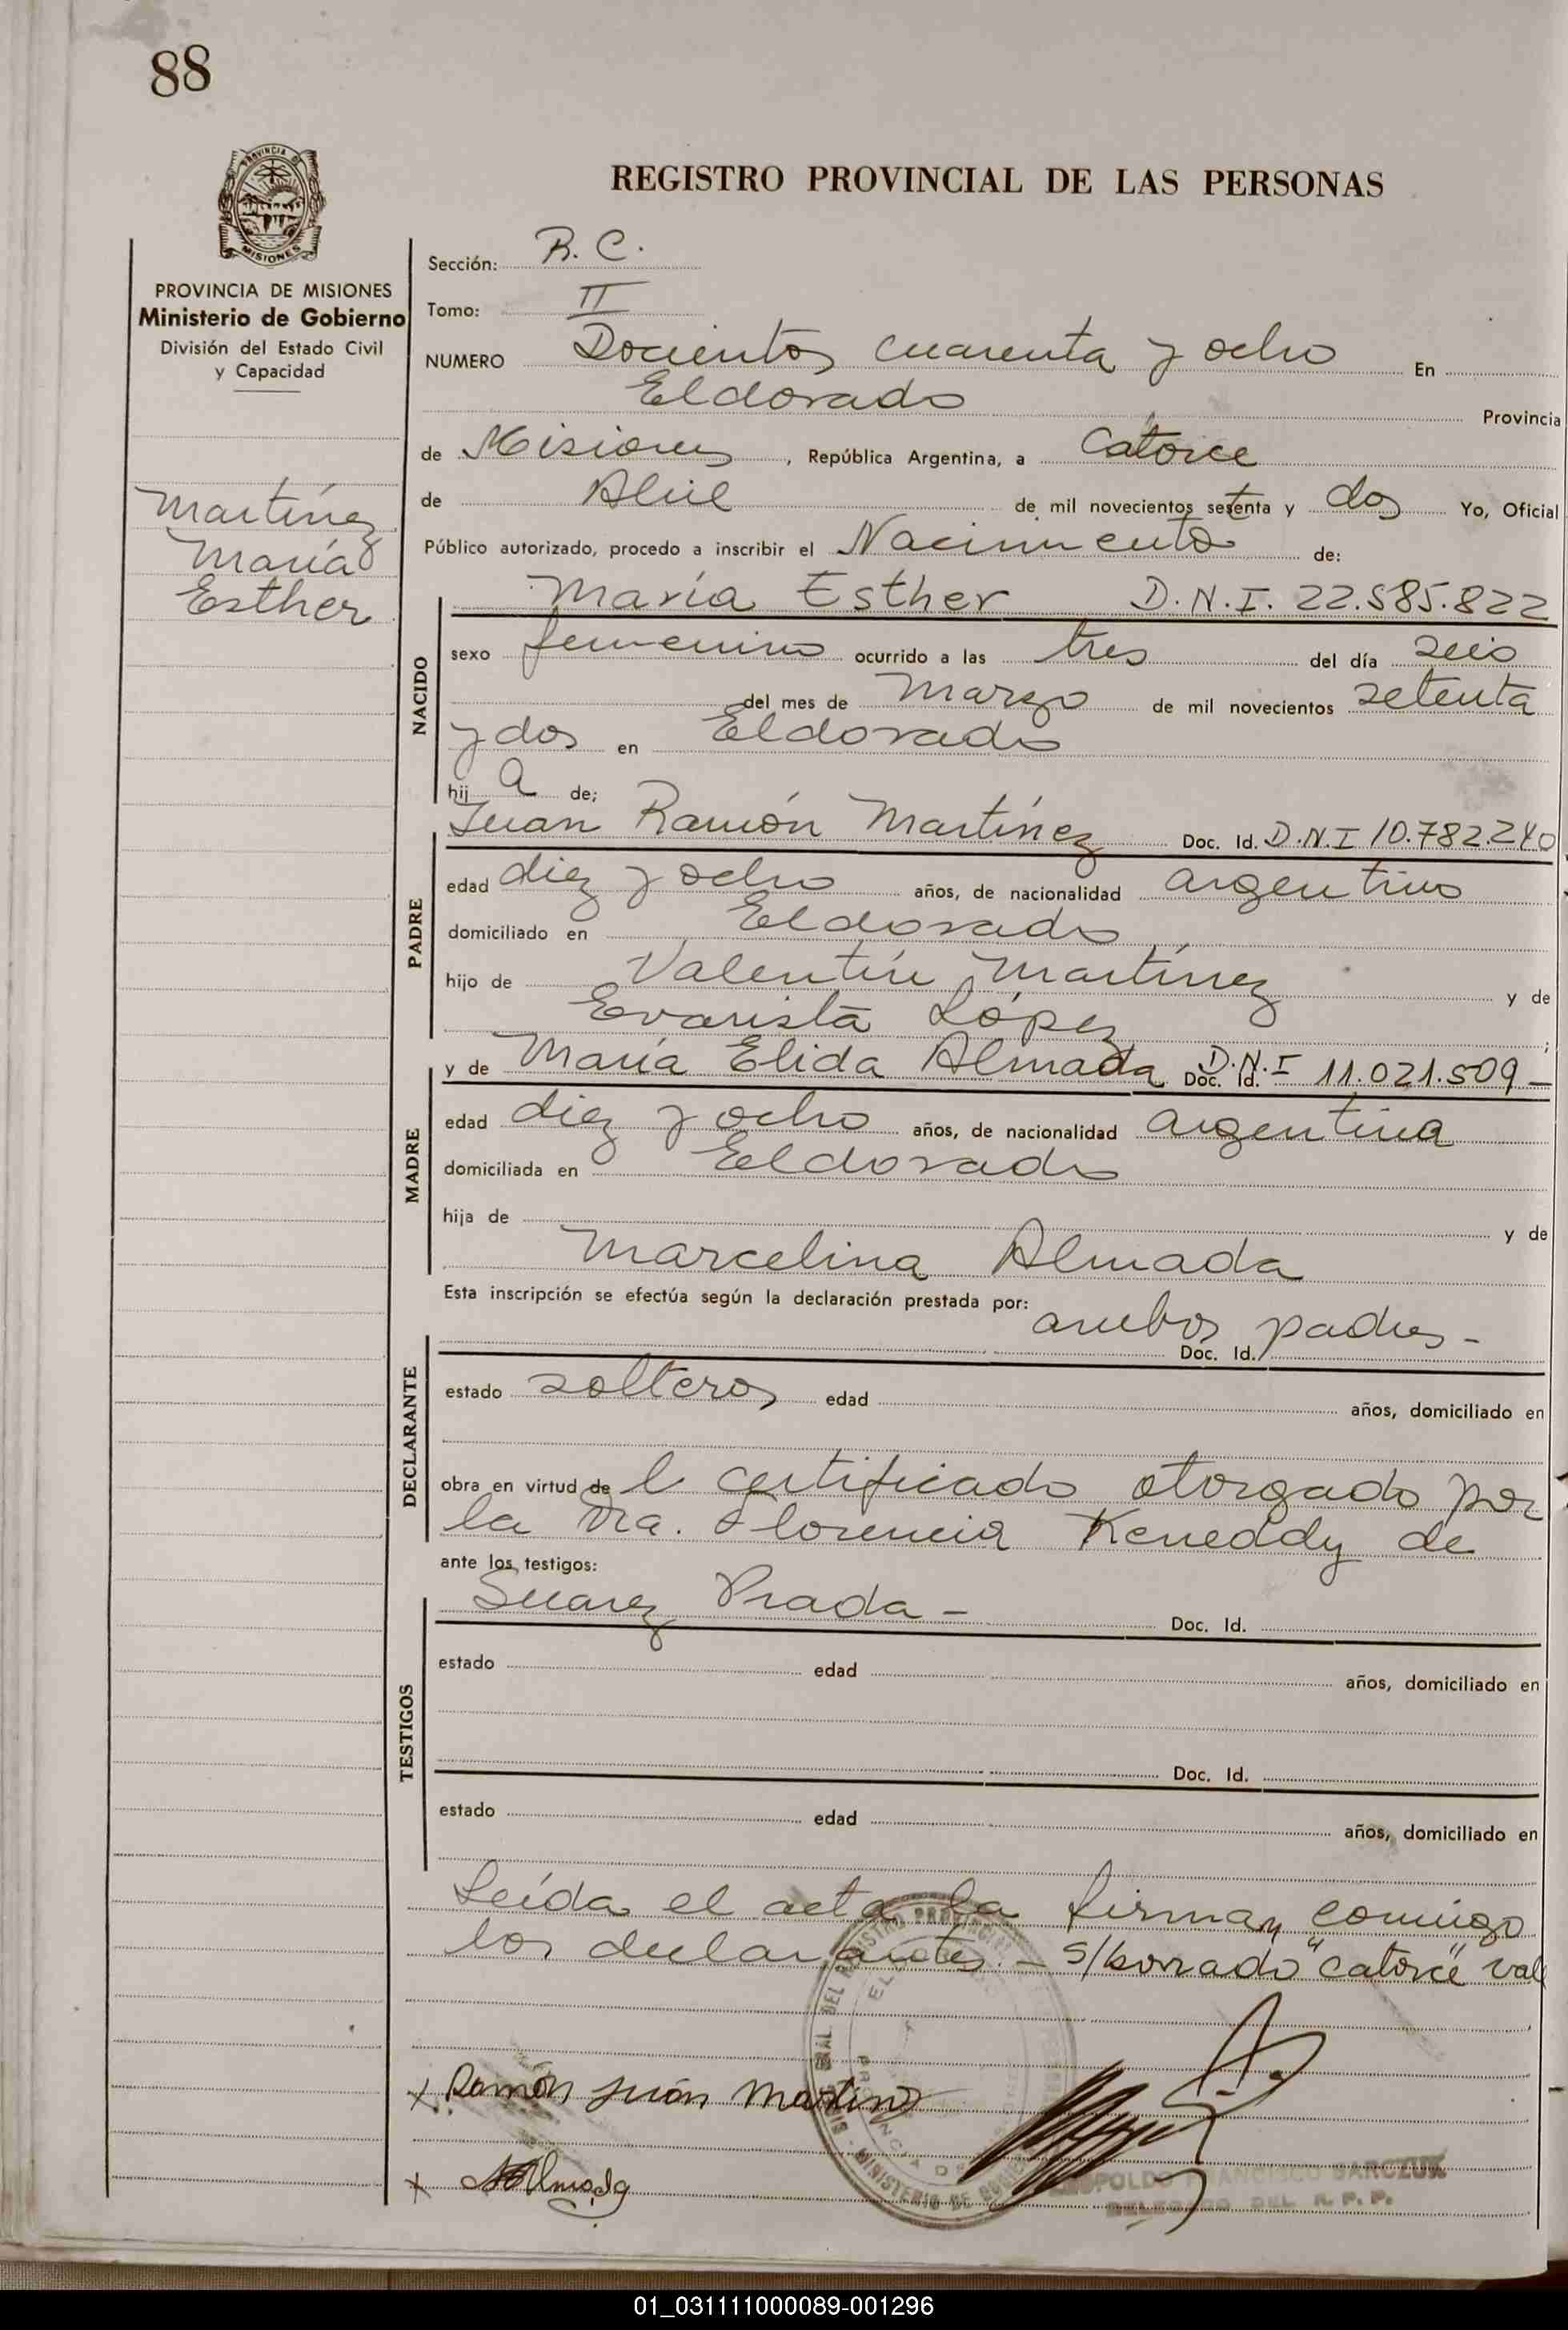 88
PROVINCIA DE
MISIONES
PROVINCIA DE MISIONES
Ministerio de Gobierno
División del Estado Civil
y Capacidad
Martínez
María
Esther
REGISTRO PROVINCIAL DE LAS PERSONAS
Sección: R. C.
Tomo: II
NUMERO Docientos cuarenta y ocho En
Eldorado Provincia
de Misiones, República Argentina, a Catorce
de Abril de mil novecientos setenta y dos Yo, Oficial
Público autorizado, procedo a inscribir el Nacimiento de:
NACIDO
María Esther D.N.I. 22.585.822
sexo femenino ocurrido a las tres del día seis
del mes de marzo de mil novecientos setenta
y dos en Eldorado
hij a de;
PADRE
Juan Ramón Martínez Doc. Id. D.N.I 10.782.240
edad diez y ocho años, de nacionalidad argentino
domiciliado en Eldorado
hijo de Valentín Martínez y de
Evarista López ;
MADRE
y de María Elida Almada Doc. Id. D.N.I 11.021.509 -
edad diez y ocho años, de nacionalidad argentina
domiciliada en Eldorado
hija de y de
Marcelina Almada
Esta inscripción se efectúa según la declaración prestada por: ambos padres -
DECLARANTE
Doc. Id.
estado solteros edad años, domiciliado en
obra en virtud de l certificado otorgado por
la Dra. Florencia Keneddy de
ante los testigos:
TESTIGOS
Suarez Prada - Doc. Id.
estado edad años, domiciliado en
Doc. Id.
estado edad años, domiciliado en
Leída el acta la firman conmigo
los declarantes. - s/borrado "catorce" vale
x Ramón Juan Martinez
x Almada
FRANCISCO SARCZUK
DELEGADO DEL R. P. P.
01_031111000089-001296